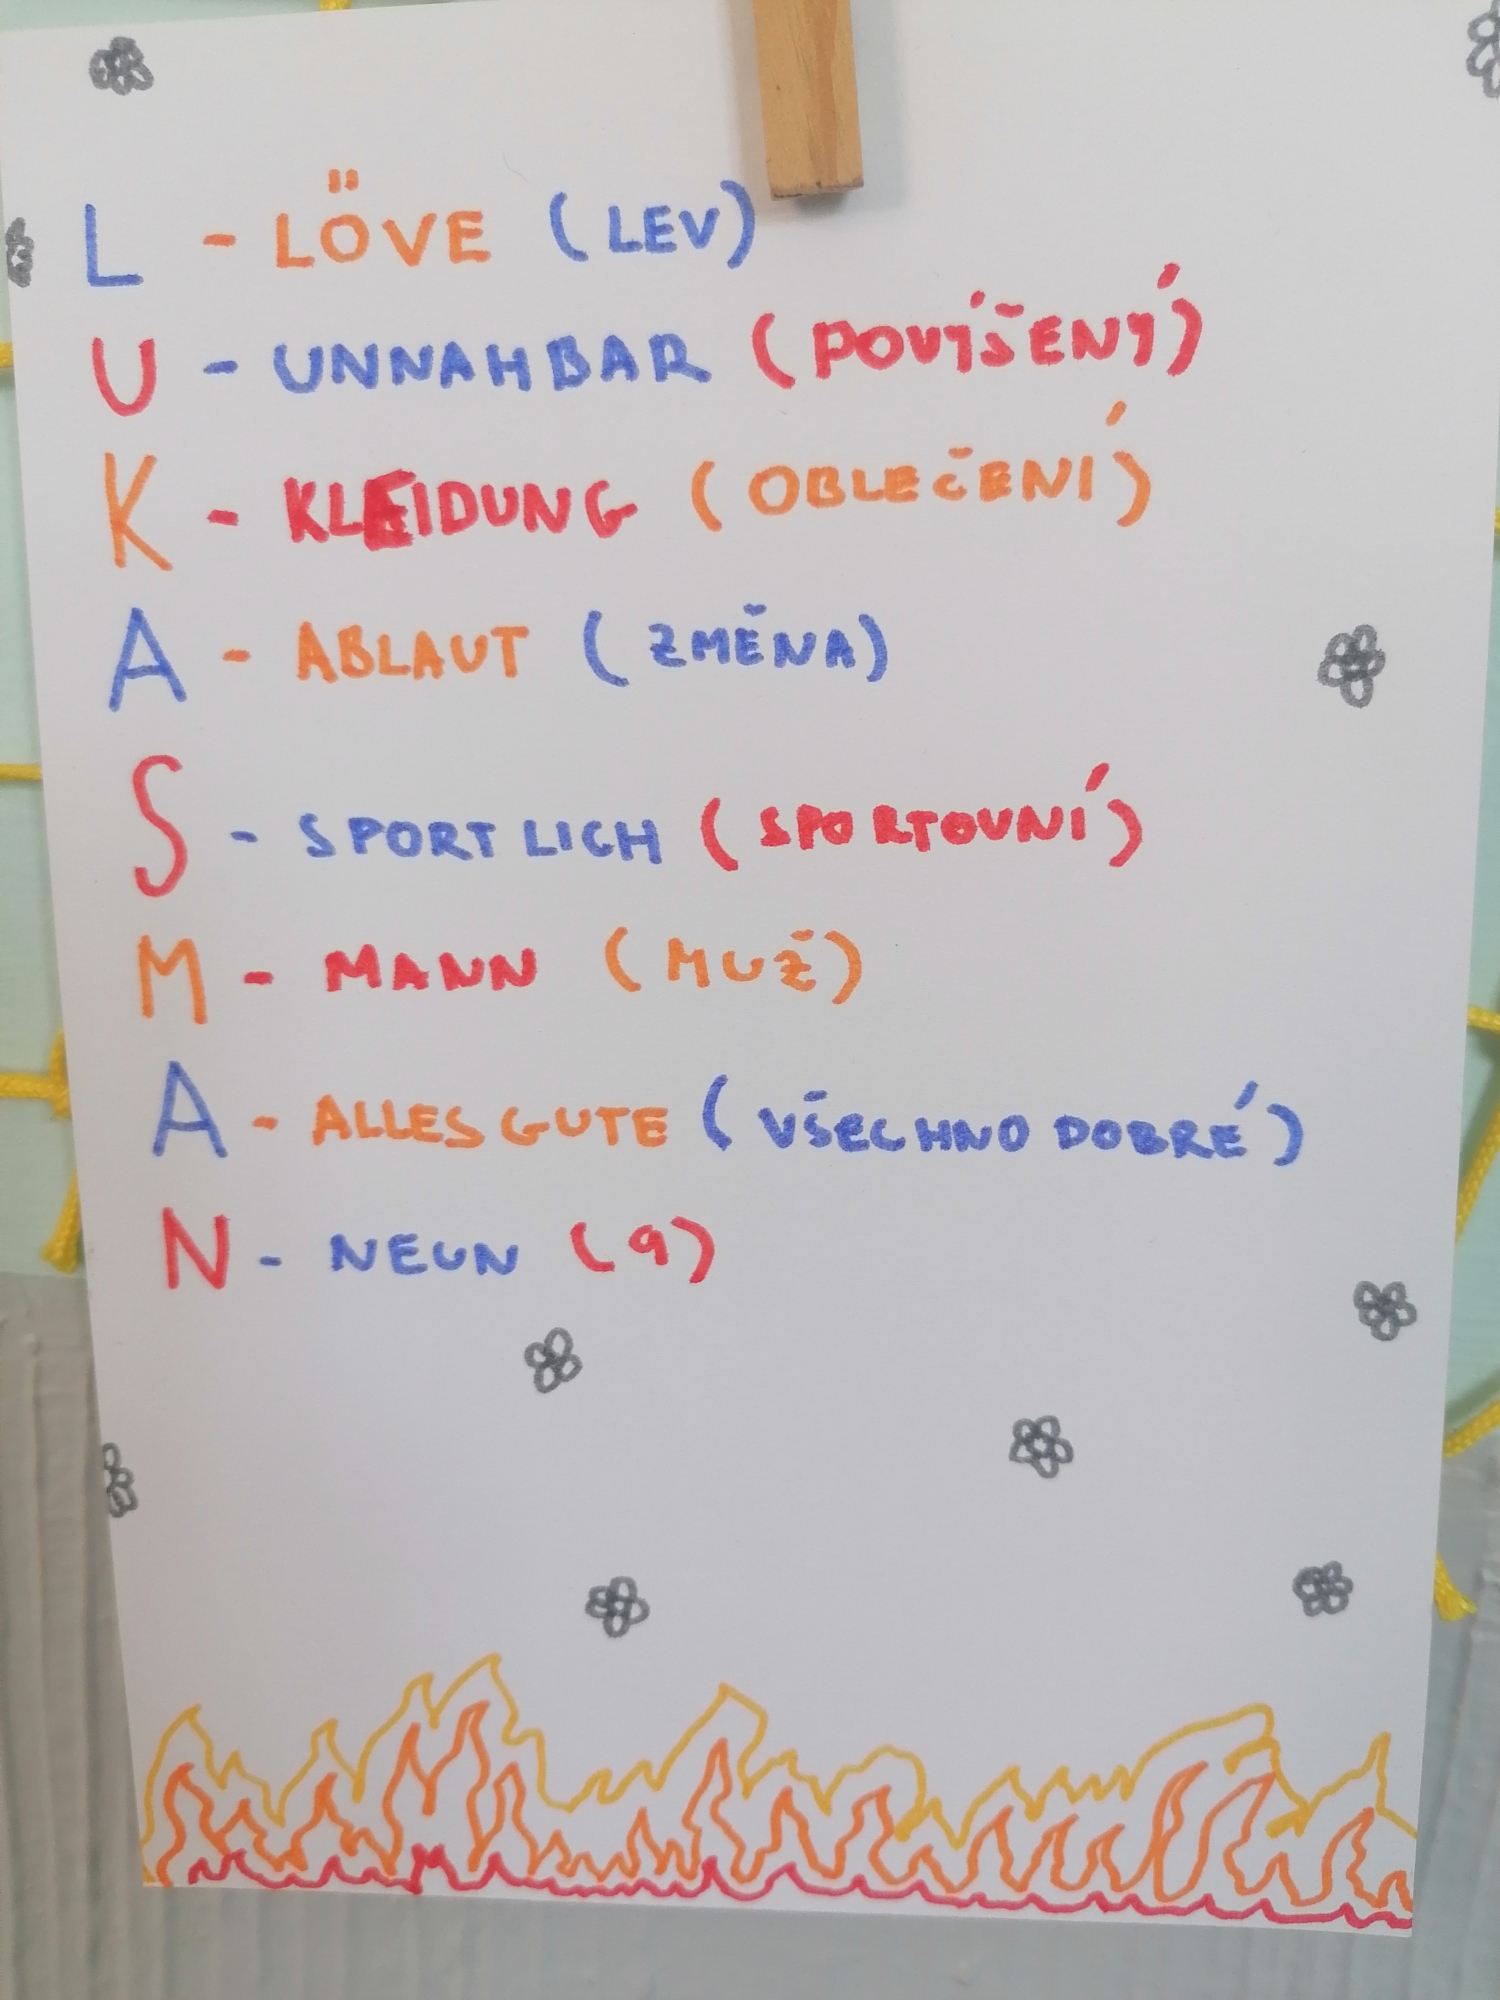 L - LÖVE (LEV)
U - UNNAHBAR (POVÝŠENÝ)
K - KLEIDUNG (OBLEČENÍ)
A - ABLAUT (ZMĚNA)
S - SPORTLICH (SPORTOVNÍ)
M - MANN (MUŽ)
A - ALLES GUTE (VŠECHNO DOBRÉ)
N - NEUN (9)